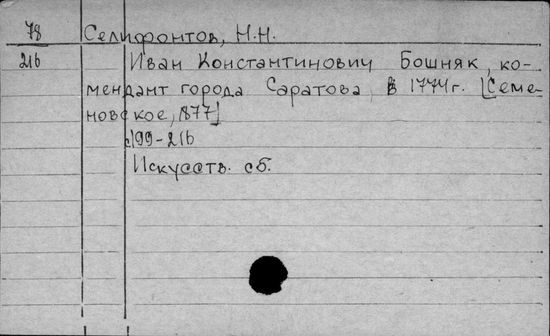 78 Селифонтов, Н.Н.
216 Иван Константинович Бошняк, ко-
мендант города Саратова, в 1774г. [Семе-
новское, 1877]
с199-216
Искусств. сб.